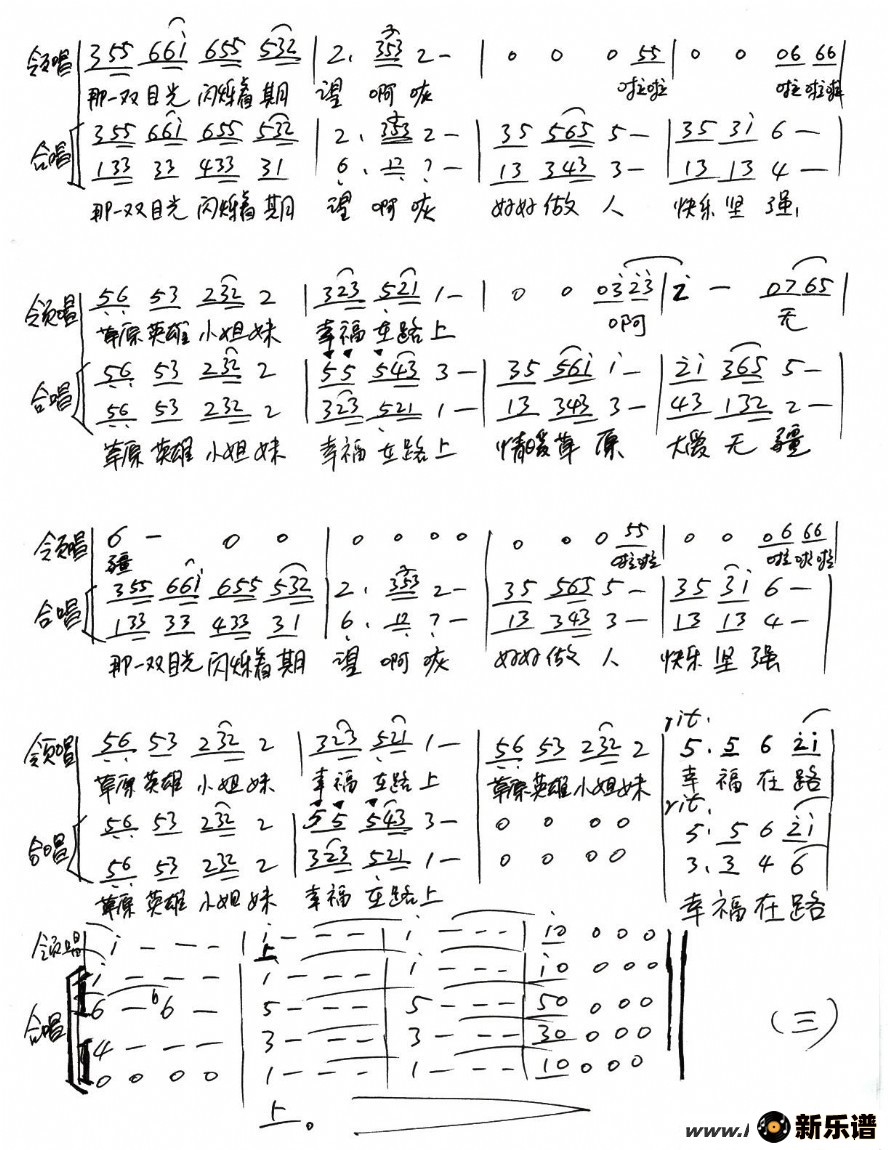 领唱 355 66i 655 532 | 2. 353 2 - | 0 0 0 55 | 0 0 06 66
那一双目光 闪烁着期 望 啊 哎 啦啦 啦啦啦
合唱 355 66i 655 532 | 2. 353 2 - | 35 565 5 - | 35 3i 6 - |
133 33 433 31 | 6. 12 7 - | 13 343 3 - | 13 13 4 - |
那一双目光 闪烁着期 望 啊 哎 好好做 人 快乐坚 强
领唱 56 53 232 2 | 323 521 1 - | 0 0 0323 | 2 - 0765 |
草原英雄 小姐妹 幸福在路上 啊 无
合唱 56 53 232 2 | 55 543 3 - | 35 561 i - | 2i 365 5 - |
56 53 232 2 | 323 521 1 - | 13 343 3 - | 43 132 2 - |
草原英雄 小姐妹 幸福在路上 情暖草 原 大爱无 疆
领唱 6 - 0 0 | 0 0 0 0 | 0 0 0 55 | 0 0 06 66
疆 啦啦 啦啦啦
合唱 355 66i 655 532 | 2. 353 2 - | 35 565 5 - | 35 3i 6 - |
133 33 433 31 | 6. 12 7 - | 13 343 3 - | 13 13 4 - |
那一双目光 闪烁着期 望 啊 哎 好好做 人 快乐坚 强
rit.
领唱 56 53 232 2 | 323 521 1 - | 56 53 232 2 | 5. 5 6 2i
草原英雄 小姐妹 幸福在路上 草原英雄小姐妹 幸福在路
rit.
合唱 56 53 232 2 | 55 543 3 - | 0 0 0 0 | 5. 5 6 2i
56 53 232 2 | 323 521 1 - | 0 0 0 0 | 3. 3 4 6
草原英雄 小姐妹 幸福在路上 幸福在路
领唱 i - - - | i - - - | i - - - | i0 0 0 0
上
合唱 i - - - | i - - - | i - - - | i0 0 0 0
6 - 6 6 - | 5 - - - | 5 - - - | 50 0 0 0
4 - - - | 3 - - - | 3 - - - | 30 0 0 0
0 0 0 0 | 1 - - - | 1 - - - | 10 0 0 0
上。
(三)
www.
新乐谱